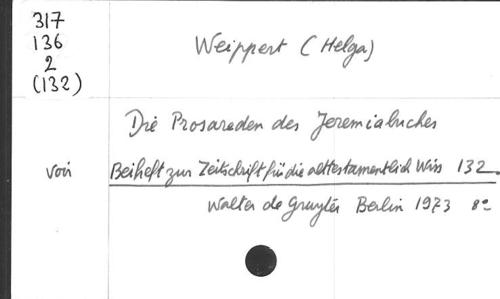 317
136
2
(132)
Weippert (Helga)
Die Prosareden des Jeremiabuches
voir Beiheft zur Zeitschrift für die alttestamentlich Wiss 132.
Walter de Gruyter Berlin 1973 8°